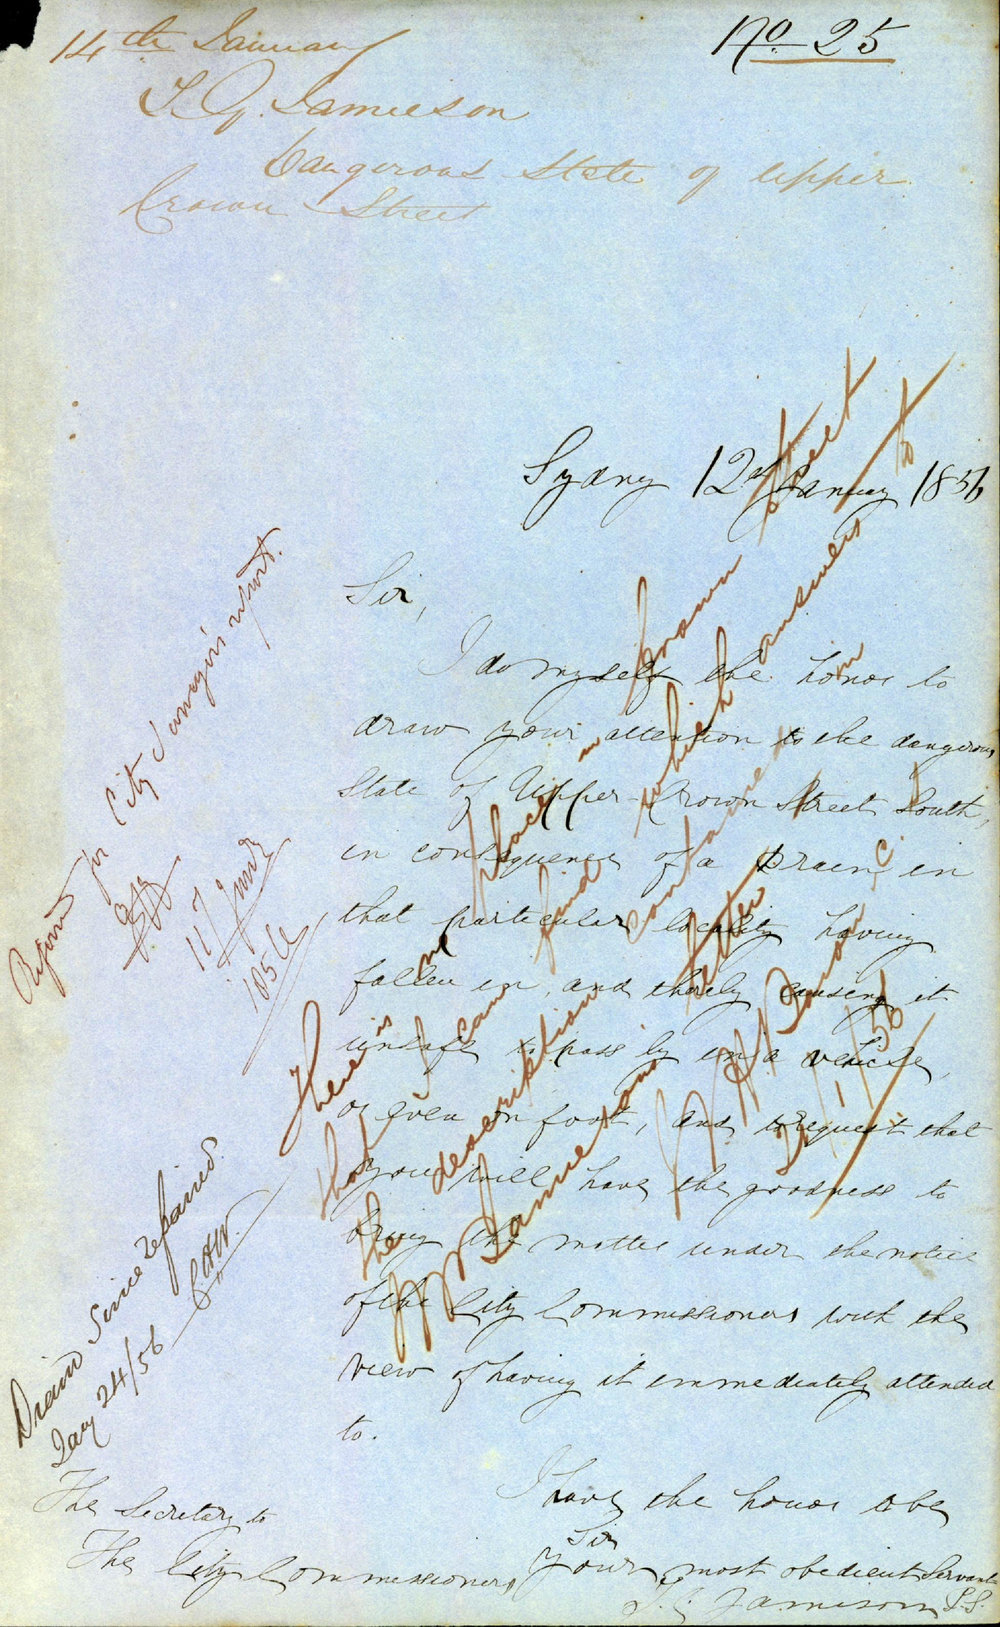 No 25
14th January
T. G. Jamieson
Dangerous State of Upper
Crown Street
Sydney 12th January 1856
Sir,
I do myself the honor to
draw your attention to the dangerous
State of Upper-Crown Street South,
in consequence of a Drain in
that particular locality having
fallen in, and thereby causing it
unsafe to pass by in a vehicle,
or even on foot, and to request that
you will have the goodness to
bring the matter under the notice
of the City Commissioners with the
view of having it immediately attended
to.
I have the honor to be
Sir
Your most obedient Servant
T. G. Jamieson
The Secretary to
The City Commissioners
Referred for City Surveyor's report.
11 Jany
1856
There is no place in Crown Street
that I can find which answers to
the description contained in
Jamiesons letter
21/1/56
Drain Since repaired.
Jany 24/56